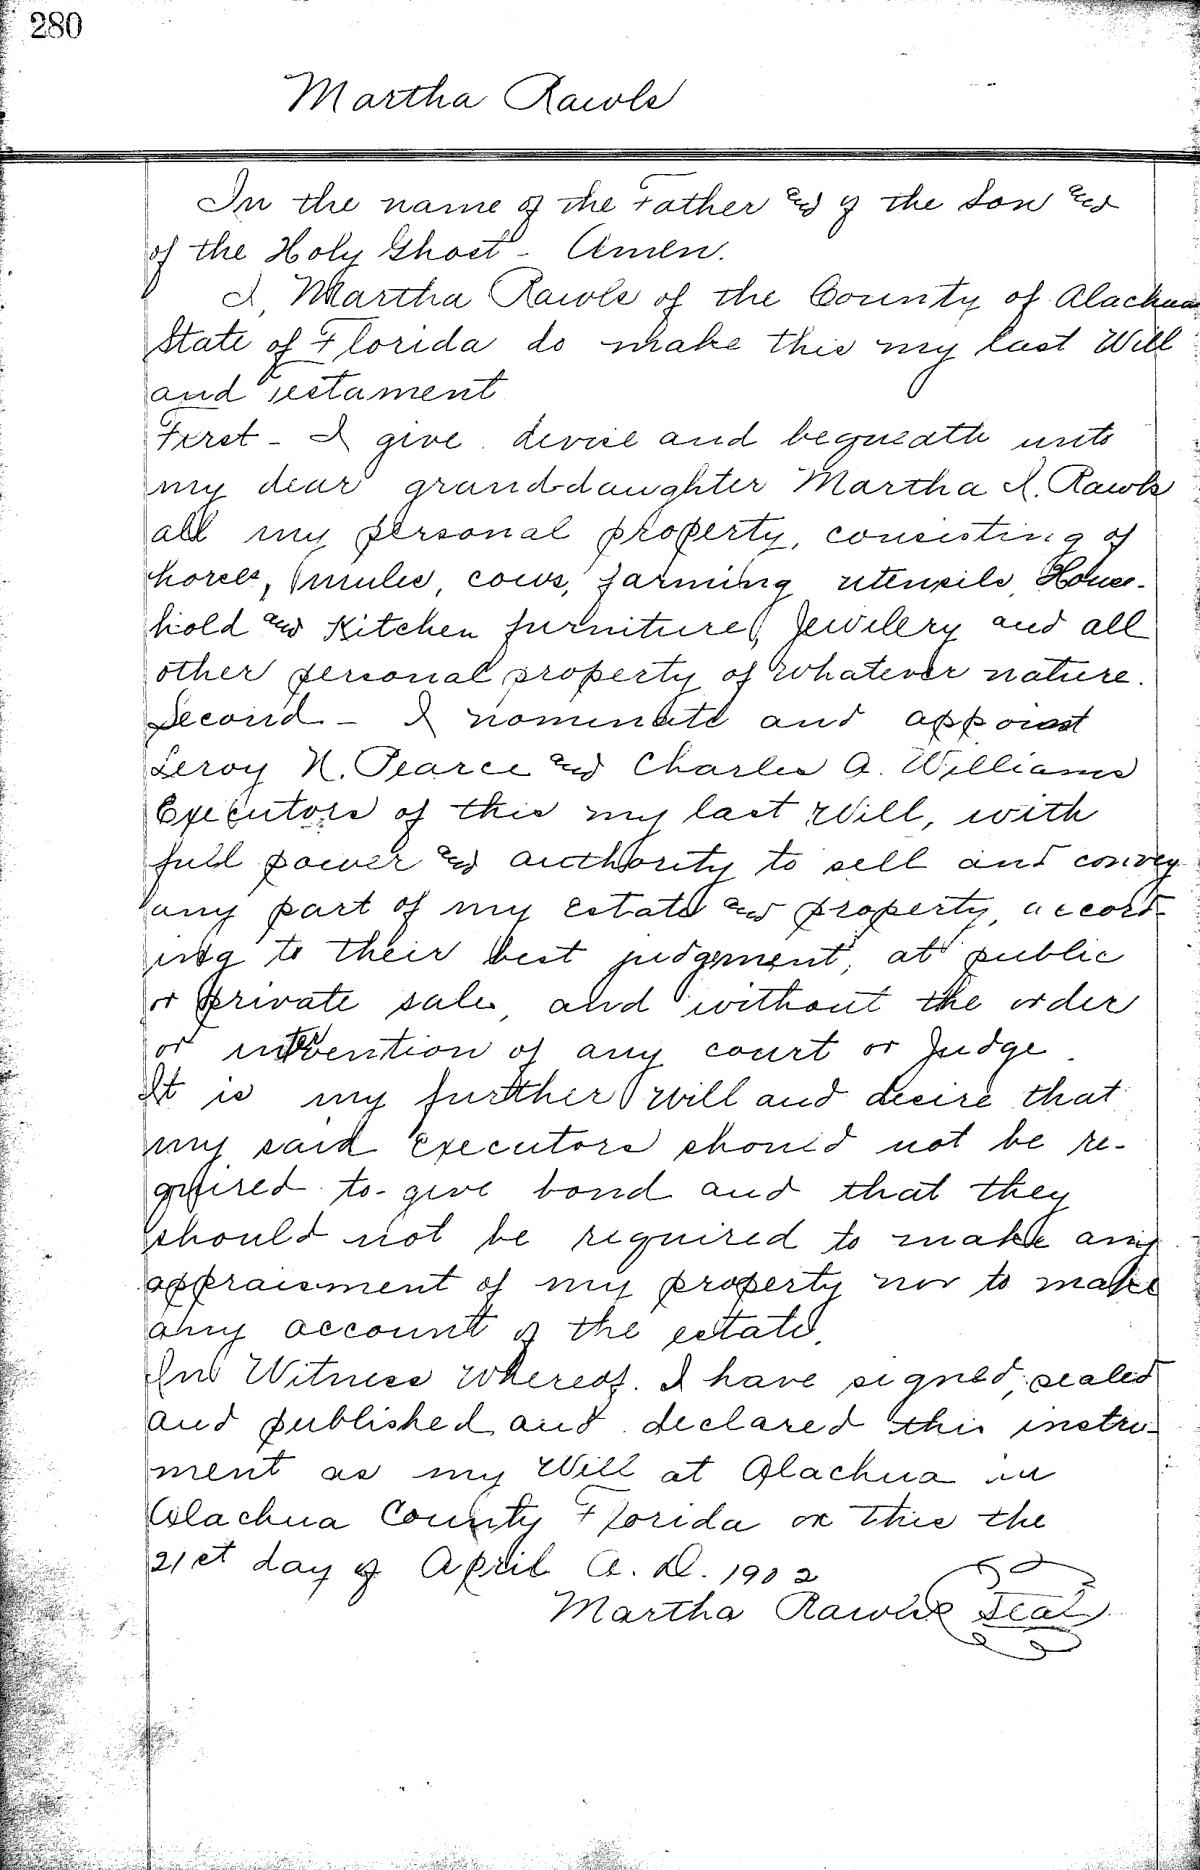 280
Martha Rawls
In the name of the Father and of the Son and
of the Holy Ghost - Amen.
I, Martha Rawls of the County of Alachua
State of Florida do make this my last Will
and Testament
First - I give devise and bequeath unto
my dear grand-daughter Martha I. Rawls
all my personal property, consisting of
horses, mules, cows, farming utensils, House-
hold and Kitchen furniture, Jewelery and all
other personal property of whatever nature.
Second - I nominate and appoint
Leroy N. Pearce and Charles A. Williams
Executors of this my last Will, with
full power and authority to sell and convey
any part of my estate and property, accord-
ing to their best judgement, at public
or private sale, and without the order
or intervention of any court or Judge.
It is my further will and desire that
my said executors should not be re-
quired to give bond and that they
should not be required to make any
appraisment of my property nor to make
any account of the estate.
In Witness whereof. I have signed, sealed
and published and declared this instru-
ment as my Will at Alachua in
Alachua County Florida on this the
21st day of April A. D. 1902
Martha Rawls Seal